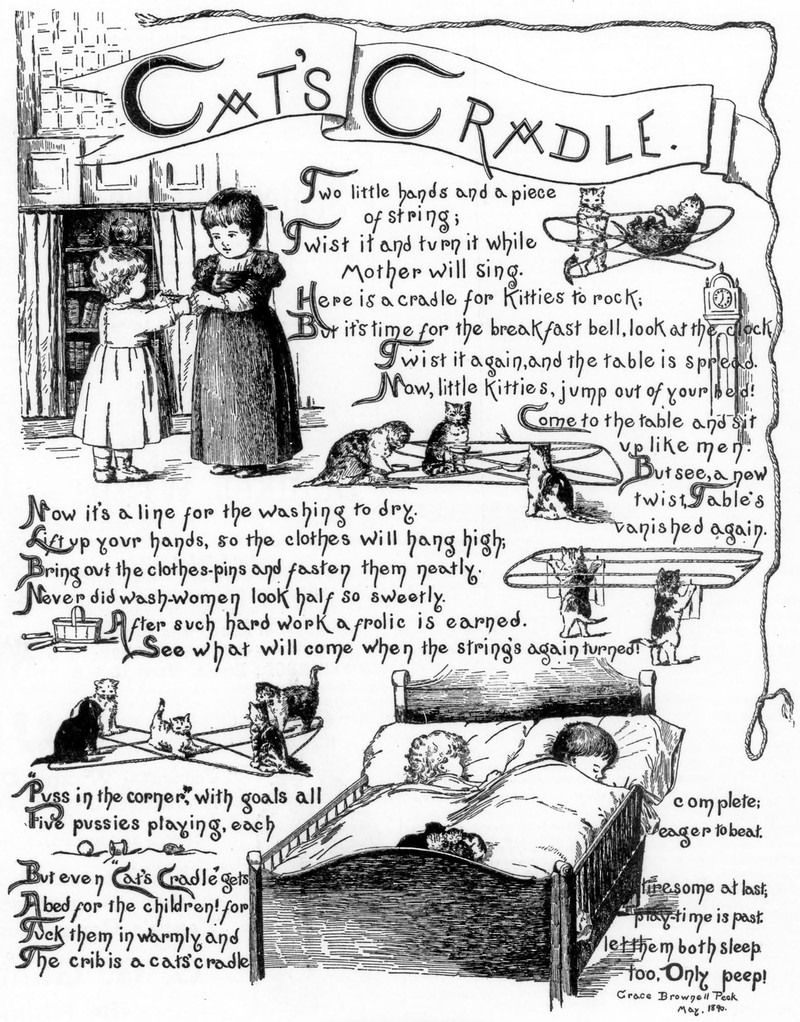 CAT'S CRADLE.
Two little hands and a piece
of string;
Twist it and turn it while
Mother will sing.
Here is a cradle for Kitties to rock;
But it's time for the breakfast bell, look at the clock
Twist it again, and the table is spread.
Now, little Kitties, jump out of your bed!
Come to the table and sit
up like men.
But see, a new
twist, Table's
vanished again.
Now it's a line for the washing to dry.
Lift up your hands, so the clothes will hang high;
Bring out the clothes-pins and fasten them neatly.
Never did wash-women look half so sweetly.
After such hard work a frolic is earned.
See what will come when the string's again turned!
"Puss in the corner," with goals all complete;
Five pussies playing, each eager to beat.
But even "Cat's Cradle" gets tiresome at last;
A bed for the children! for play-time is past.
Tuck them in warmly and let them both sleep
The crib is a cat's cradle too, Only peep!
Grace Brownell Peck
May, 1890.